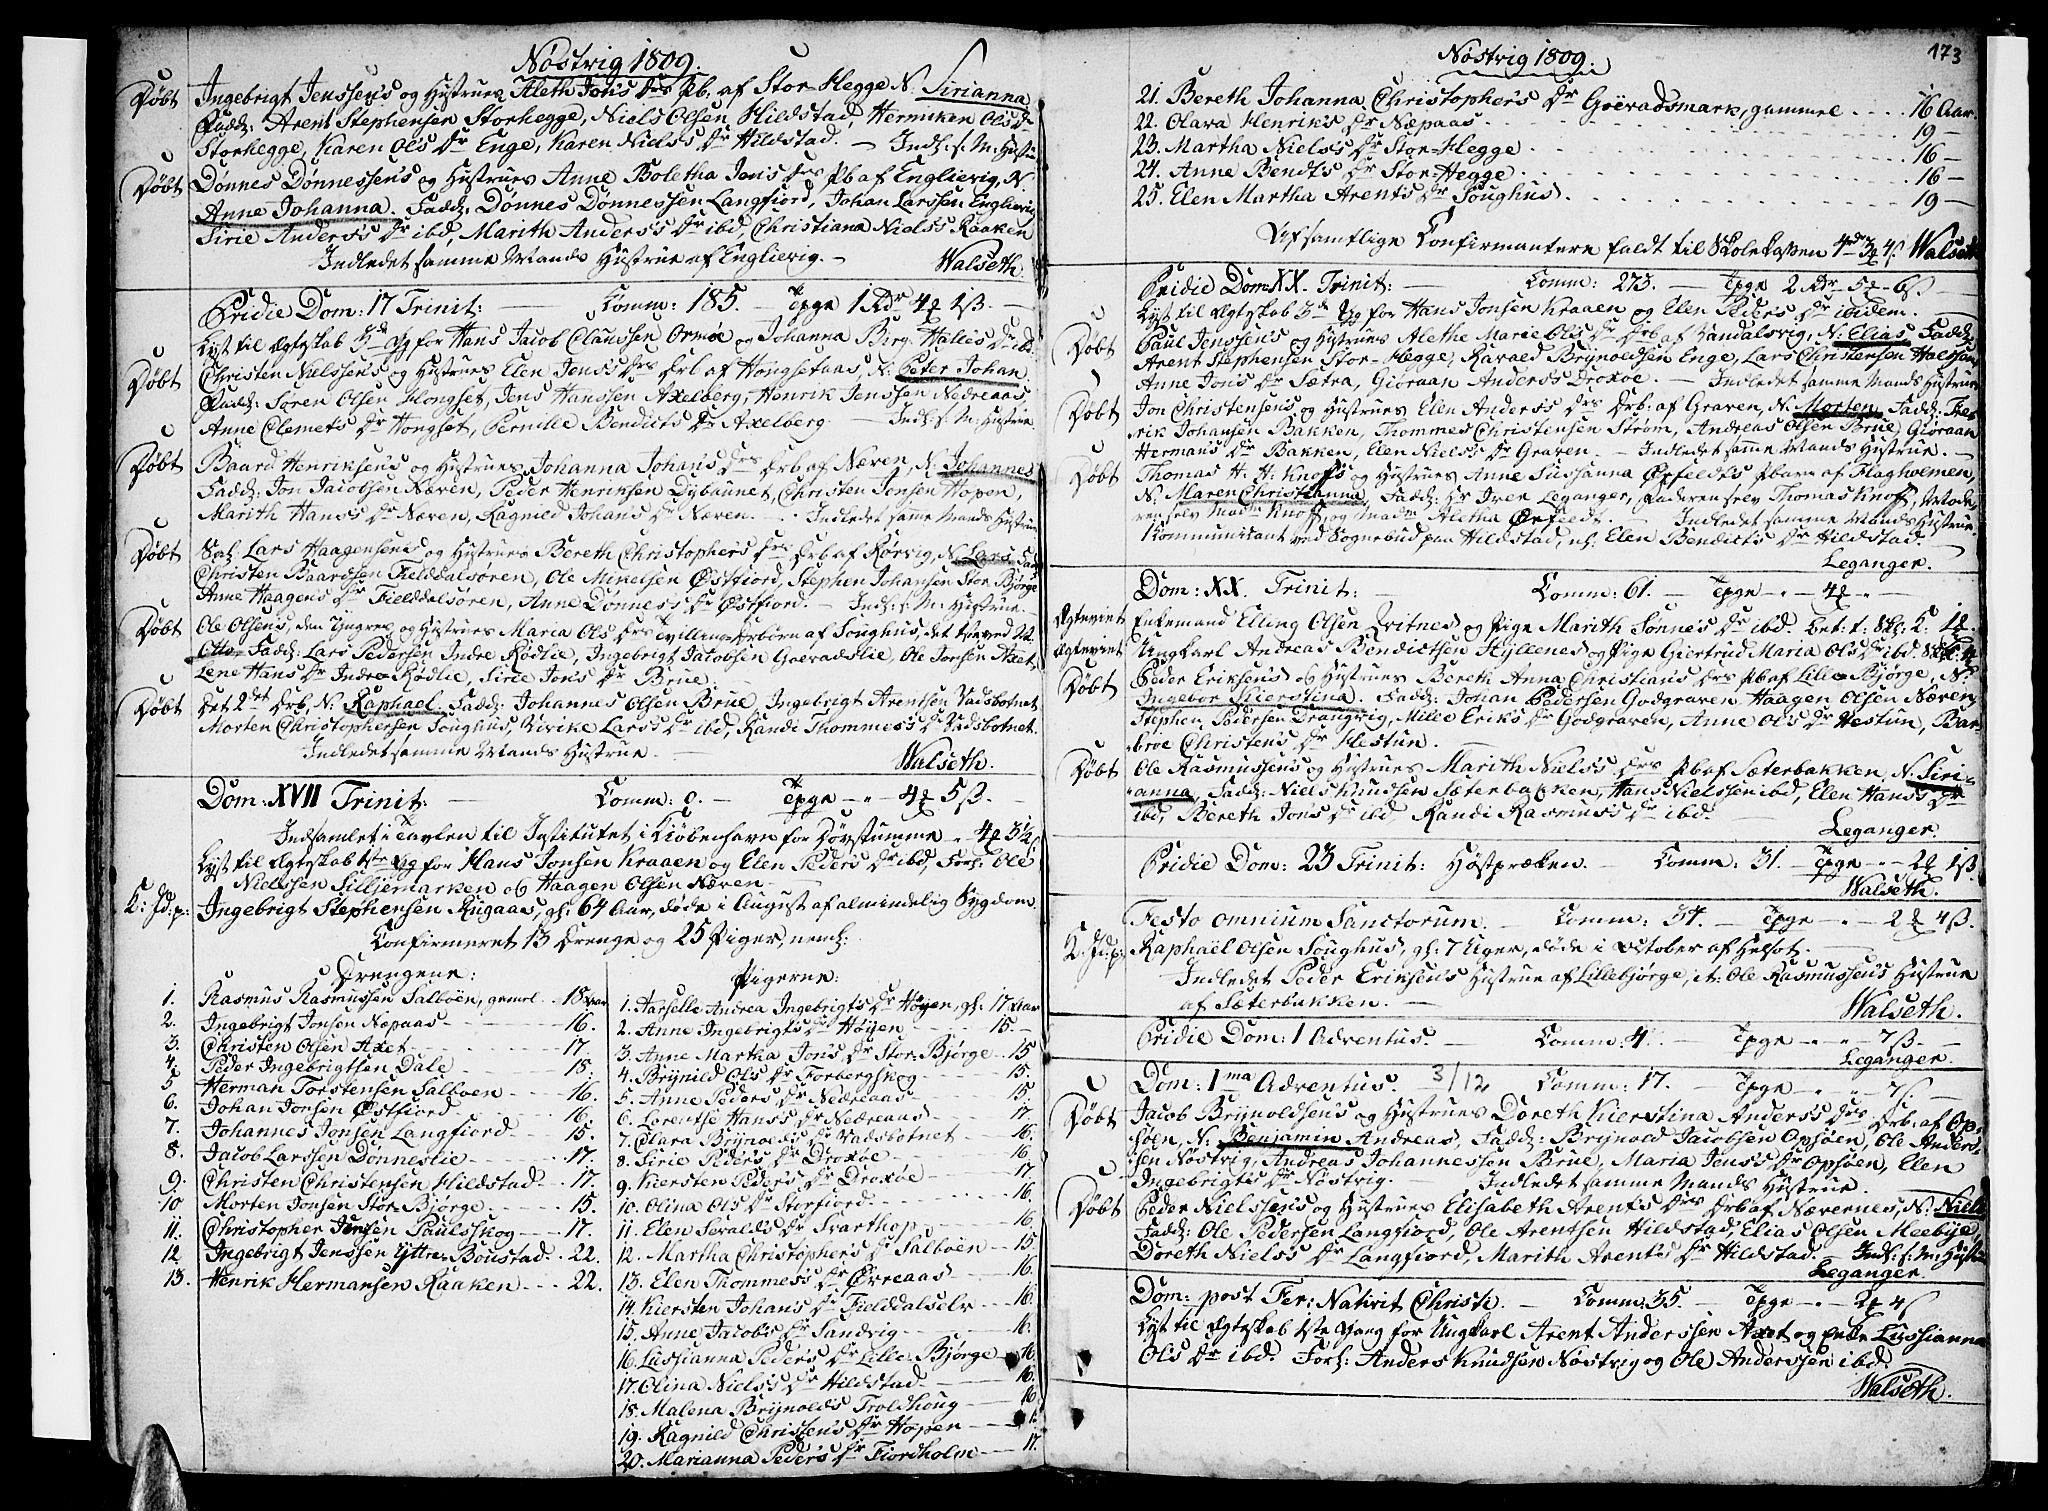 Nöstrig 1809.
Döbt Ingebrigt Jenssen's og Hustrues Aleth Jons Drs Pb. af Stor-Hegge N. Sirianna
Fadd: Arent Stephensen Storhegge, Niels Olsen Hildstad, Hermiken Ols Dr
Storhegge, Karen Ols Dr Enge, Karen Niels's Dr Hildstad. — Indl: s: M: Hustrue
Döbt Dönnes Dönnessen's og Hustrues Anne Boletha Jon's Drs Pb af Englievig, N.
Anne Johanna. Fadd: Dönnes Dönnessen Langfiord, Johan Larssen Englievig
Sirie Anders's Dr ibd, Marith Anders's Dr ibd, Christiana Niels's Kaaken
Indledet samme Mands Hustrue af Englievig. — Walseth
Pridie Dom: 17 Trinit: — Comm: 185. — Tpge 1 Rdr 4 ꝷ 1ß —
Lyst til Ægteskab 3de Gg for Hans Jacob Claussen Ormöe og Johanna Birg. Halles Dr ibd.
Döbt Christen Nielssen's og Hustrues Elen Jons's Drs Drb af Hongsetaas, N: Peter Johan
Fadd: Sören Olsen Hongset, Jens Hanssen Axelberg, Henrik Jenssen Nedreaas
Anne Clemets Dr Hongset, Pernille Bendicts Dr Axelberg. — Indl: s: M: Hustrue
Döbt Baard Henriksen's og Hustrues Johanna Johan's Drs Drb af Næren, N. Johannes
Fadd: Jon Jacobsen Næren, Peder Henriksen Dybaunet, Christen Jonsen Hopen,
Marith Hans's Dr Næren, Ragnild Johans Dr Næren. — Indledet samme Mands Hustrue
Döbt Sal: Lars Haagensens og Hustrues Bereth Christopher's Drs Drb af Rörvig, N. Lars Fadd
Christen Baardsen Fielddalsören, Ole Mikelsen Östfiord, Stephen Johansen Stor Bjørge
Anne Haagens Dr Fielddalsören, Anne Dönnes's Dr Östfiord. — Indl: s: M: Hustrue.
Döbt Ole Olsens, den Yngres og Hustrues Maria Ols Drs Tvilling-Börn af Soughus, det 1ste ved N.
Otto. Fadd: Lars Pedersen Indre Rödlie, Ingebrigt Jacobsen Goeradslie, Ole Jonsen Axet,
Lene Hans Dr Indre Rödlie, Sirie Jon's Dr Brue. —
Döbt Det 2det Drb, N: Raphael. Fadd: Johannes Olsen Brue, Ingebrigt Arentsen Vadsbotnet
Morten Christophersen Soughus, Birike Lars's Dr ibd, Randi Thommes's Dr Vadsbotnet.
Indledet samme Mands Hustrue. — Walseth.
Dom: XVII Trinit: — Comm: 0. — Tpge — „ 4 ꝷ 5ß. —
Indsamlet i Tavlen til Institutet i Kiöbenhavn for Dövstumme „ 4 ꝷ 3½ß
Lyst til Ægteskab 1ste Gg for Hans Jonsen Kraaen og Elen Peders Dr ibd, Forl: Ole
Nielssen Silljemarken og Haagen Olsen Næren. —
K: Jd: p: Ingebrigt Stephensen Rugaas, gl: 64 Aar, döde i August af almindelig Sygdom.
Confirmeret 13 Drenge og 25 Piger, neml:
Drengene:
1. Rasmus Rasmussen Salböen, gaml. 18 Aar
2. Ingebrigt Jonsen Næpaas — 16.
3. Christen Olsen Axet — 17.
4. Peder Ingebrigtsen Dale — 18.
5 Herman Torstensen Salboen — 16.
6. Johan Jonsen Östfiord — 16.
7. Johannes Jonsen Langfiord — 15.
8. Jacob Larssen Dönneslie — 17.
9. Christen Christensen Hildstad — 17.
10 Morten Jonsen Stor-Bjørge — 15.
11. Christopher Jensen Paulsskog — 17.
12 Ingebrigt Jenssen Yttre Boustad — 22.
13. Henrik Hermansen Kaaken — 22.
Pigerne:
1. Aarselle Andrea Ingebrigts Dr Höyen, gl: 17 Aar
2. Anne Ingebrigts Dr Höyen — 15. —
3. Anne Martha Jon's Dr Stor-Bjørge — 15
4. Brijnild Ols Dr Forbergskog — 15.
5. Anne Peders Dr Nedreaas — 15.
6. Lorentse Hans's Dr Nedreaas — 17.
7. Clara Brijnoels Dr Vadsbotnet — 16.
8. Sirie Peder's Dr Droxöe — 16.
9. Kiersten Peders Dr Droxöe — 17
10. Olina Ols Dr Storfiord — 16.
11. Elen Sevalds Dr Svarthop — 16.
12. Martha Christophers Dr Salboen — 15.
13. Elen Thommes's Dr Övreaas — 16.
14. Kiersten Johans Dr Fielddalselv — 16.
15. Anne Jacobs Dr Sandvig — 16.
16. Lussianna Peder's Dr Lille Bjørge — 16.
17. Olina Niels's Dr Hildstad — 16.
18. Malena Brijnolds Troldhoug — 16
19. Ragnild Christen's Dr Hopen —
20. Marianna Peder's Dr Fiordholm — 17.
Nöstrig 1809. 173
21. Bereth Johanna Christopher's Dr Goëvadsmark, gammel .... 16 Aar.
22. Olava Henrik's Dr Næpaas. .... 19 —
23. Martha Niels's Dr Stor-Hegge. .... 16 —
24. Anne Bendts Dr Stor-Hegge. .... 16 —
25. Elen Martha Arents Dr Soughus. .... 19 —
Af samtlige Confirmantere faldt til Skolekassen 4rd 3 ꝷ 4ß Walseth
Pridie Dom: XX. Trinit: — Comm: 273. — Tpge 2 Rdr 5 ꝷ 6ß. —
Lyst til Ægteskab 3de Gg for Hans Jonsen Kraaen og Elen Peders Dr ibidem.
Döbt Paul Jenssen's og Hustrues Alethe Marie Ols Dr Drb af Vandalsvig, N: Elias. Fadd:
Arent Stephensen Stor-Hegge, Ravald Brijnoldsen Enge, Lars Christensen Halsaan
Anne Jon's Dr Sætra, Giöraan Anders's Droxöe. — Indledet samme Mands Hustrue
Döbt Jon Christensens og Hustrues Elen Anders's Drs Drb: af Graven, N: Morten, Fadd: Fre-
rik Johansen Bakken, Thommes Christensen Ström, Andreas Olsen Brue, Giöraan
Hermans Dr Bakken, Elen Niels's Dr Graven. — Indledet samme Mands Hustrue. —
Döbt Thomas H. H. Knoffs og Hustrues Anne Sussanna Örfeldts Pbarn af Flagholmen,
N. Maren Christianna, Fadd: Hr Iver Leganger, Faderen selv Thomas Knoff, Mode-
ren selv Madm Knoff, og Madm Aletha Örfeldt. — Indledet samme Mands Hustrue.
Kommunikant ved Sognebud paa Hildstad, nl: Elen Bendicts Dr Hildstad. —
Leganger.
Dom: XX. Trinit: — Comm: 61. — Tpge — „ 4 ꝷ „ —
Ægteviet Enkemand Elling Olsen Qvitnes og Pige Marith Sönnes Dr ibd. bet: t: Skl: K: 1 ꝷ.
Ægteviet Ungkarl Andreas Bendictsen Hyllenes og Pige Giertrud Maria Ols Dr ibd. Skl: K: 1 ꝷ
Döbt Peder Eriksens og Hustrues Bereth Anna Christians Drs Pb af Lille Bjørge, N:
Ingebor Kierstina. Fadd: Johan Pedersen Godgraven Haagen Olsen Næren,
Stephen Pedersen Draugvig, Mille Eriks Dr Godgraven, Anne Ols Dr Hestun, Bar-
broe Christen's Dr Hestun.
Döbt Ole Rasmussen's og Hustrues Marith Niels's Drs Pb af Sæterbakken, N. Siri-
anna, Fadd: Niels Knudsen Sæterbakken, Hans Nielssen ibd, Elen Hans's Dr
ibd, Bereth Jon's Dr ibd Randi Rasmus's Dr ibd. —
Leganger.
Pridie Dom: 23 Trinit: Höstpræken. — Comm: 31. — Tpge — „ 2 ꝷ 1ß.
Walseth.
Festo omnium Sanctorum. — Comm: 34. — Tpge — „ 2 ꝷ 4ß.
K: Jd: p: Raphaël Olsen Soughus, gl: 7 Uger, döde i October af Helsot. —
Indledet Peder Eriksen's Hustrue af Lillebjørge, it: Ole Rasmussen's Hustrue
af Sæterbakken. —
Walseth.
Pridie Dom: 1 Adventus. — Comm: 4. — Tpge — „ 7ß. —
Leganger.
Dom: 1ma Adventus. 3/12 Comm: 17. — Tpge — „ 7ß. —
Döbt Jacob Brijnoldsen's og Hustrues Doreth Kierstina Anders's Drs Drb: af Op-
söen, N: Benjamin Andreas, Fadd: Brijnold Jacobsen Opsöen, Ole Anders-
sen Nöstvig, Andreas Johannessen Brue, Maria Jens's Dr Opsöen, Elen
Ingebrigts Dr Nöstvig. — Indledet samme Mands Hustrue.
Döbt Peder Nielssen's og Hustrues Elisabeth Arents Drs Drb af Nævernes, N: Niels
Fadd: Ole Pedersen Langfiord, Ole Arentsen Hildstad, Elias Olsen Meebye,
Doreth Niels's Dr Langfiord, Marith Arents Dr Hildstad. — Indl: s: M: Hustrue
Leganger.
Dom: post Fer: Nativit Christi. — Comm: 35. — Tpge — „ 2 ꝷ 4ß
Lyst til Ægteskab 1ste Gang for Ungkarl Arent Anderssen Axet og Enke Lussianna
Ols Dr ibd. Forl: Anders Knudsen Nöstvig og Ole Anderssen ibd.
Walseth.